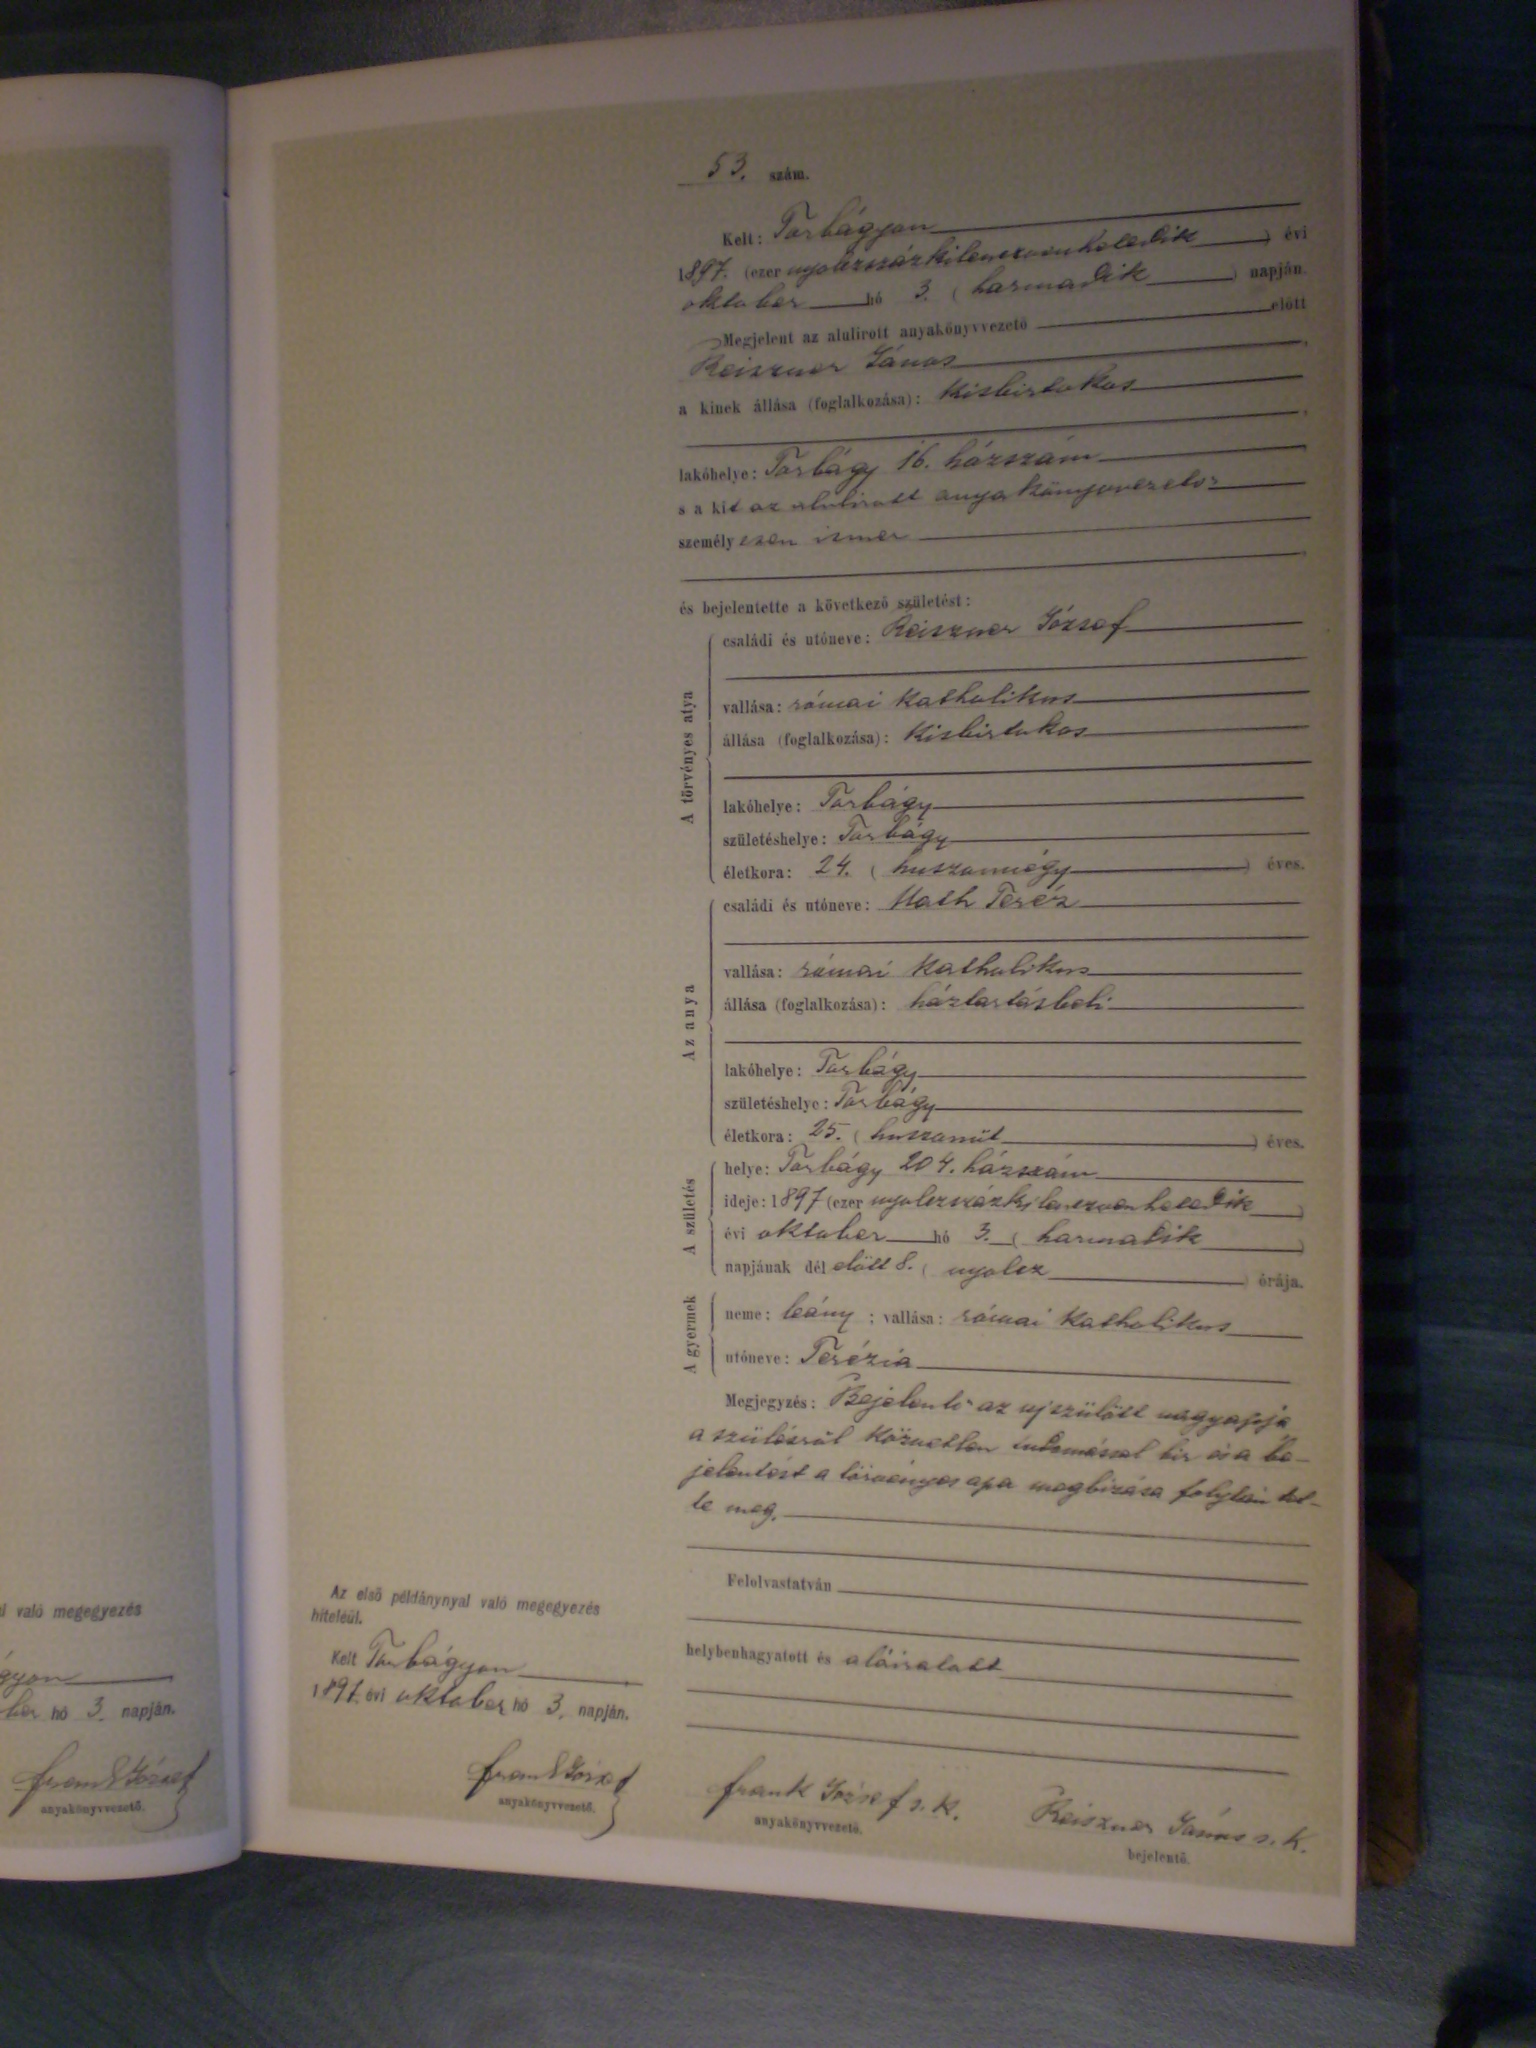 53. szám.
Kelt: Torbágyon
1897. (ezer nyolczszázkilenczvenhetedik) évi
oktober hó 3. (harmadik) napján.
Megjelent az alulírott anyakönyvvezető előtt
Reiszner János
a kinek állása (foglalkozása): kisbirtokos
lakóhelye: Torbágy 16. házszám
s a kit az alulirott anyakönyvvezető
személyesen ismer
és bejelentette a következő születést:
A törvényes atya
családi és utóneve: Reiszner József
vallása: római katholikus
állása (foglalkozása): Kisbirtokos
lakóhelye: Torbágy
születéshelye: Torbágy
életkora: 24. (huszonnégy) éves.
Az anya
családi és utóneve: Math Teréz
vallása: római katholikus
állása (foglalkozása): háztartásbeli
lakóhelye: Torbágy
születéshelye: Torbágy
életkora: 25. (huszonöt) éves.
A születés
helye: Torbágy 204. házszám
ideje: 1897 (ezer nyolczszázkilenczvenhetedik)
évi oktober hó 3. (harmadik)
napjának dél előtt 8. (nyolcz) órája.
A gyermek
neme: leány; vallása: római katholikus
utóneve: Terézia
Megjegyzés: Bejelentő az ujszülött nagyapja
a szülésről közvetlen tudomással bir és a be-
jelentést a törvényes apa megbizása folytán tet-
te meg.
Felolvastatván
helybenhagyatott és aláiratott
frank József s. k.
anyakönyvvezető.
Reiszner János s. k.
bejelentő.
Az első példánynyal való megegyezés
hiteléül.
Kelt Torbágyon
1897. évi oktober hó 3. napján.
frank József
anyakönyvvezető.
l való megegyezés
ágyon
ber hó 3. napján.
frank József
anyakönyvvezető.